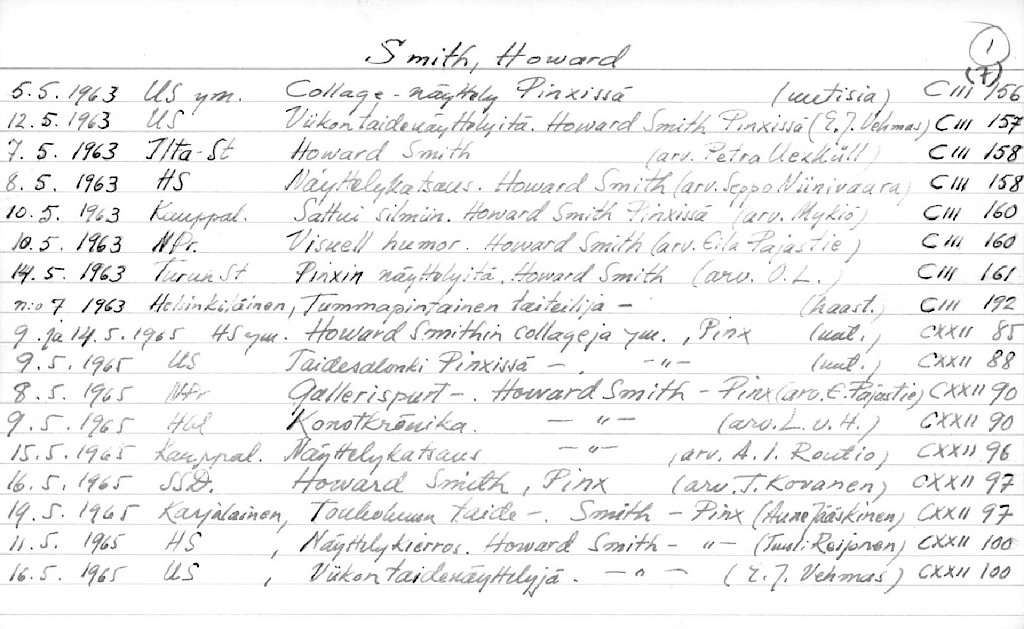 Smith, Howard
1
(7)
5.5. 1963 US ym. Collage-näyttely Pinxissä (uutisia) CIII 156
12.5. 1963 US Viikon taidenäyttelyitä. Howard Smith Pinxissä (E.J. Vehmas) CIII 157
7.5. 1963 Ilta-St Howard Smith (arv. Petra Uexküll) CIII 158
8.5. 1963 HS Näyttelykatsaus. Howard Smith (arv. Seppo Niinivaara) CIII 158
10.5. 1963 Kauppal. Sattui silmiin. Howard Smith Pinxissä (arv. Mykiö) CIII 160
10.5. 1963 NPr. Visuell humor. Howard Smith (arv. Eila Pajastie) CIII 160
14.5. 1963 Turun St Pinxin näyttelyitä. Howard Smith (arv. O.L.) CIII 161
n:o 7 1963 Helsinkiläinen, Tummapintainen taiteilija - (haast.) CIII 192
9. ja 14.5. 1965 HS ym. Howard Smithin collageja ym., Pinx (uut.) CXXII 85
9.5. 1965 US Taidesalonki Pinxissä - . - " - (uut.) CXXII 88
8.5. 1965 NPr Gallerispurt - . Howard Smith - Pinx (arv. E. Pajastie) CXXII 90
9.5. 1965 Hbl Konstkrönika. - " - (arv. L.v.H.) CXXII 90
15.5. 1965 Kauppal. Näyttelykatsaus - " - (arv. A.I. Routio) CXXII 96
16.5. 1965 SSD. Howard Smith, Pinx (arv. T. Kovanen) CXXII 97
19.5. 1965 Karjalainen, Toukokuun taide - . Smith - Pinx (Aune Jääskinen) CXXII 97
11.5. 1965 HS , Näyttelykierros. Howard Smith - " - (Tuuli Reijonen) CXXII 100
16.5. 1965 US , Viikon taidenäyttelyjä. - " - (E.J. Vehmas) CXXII 100